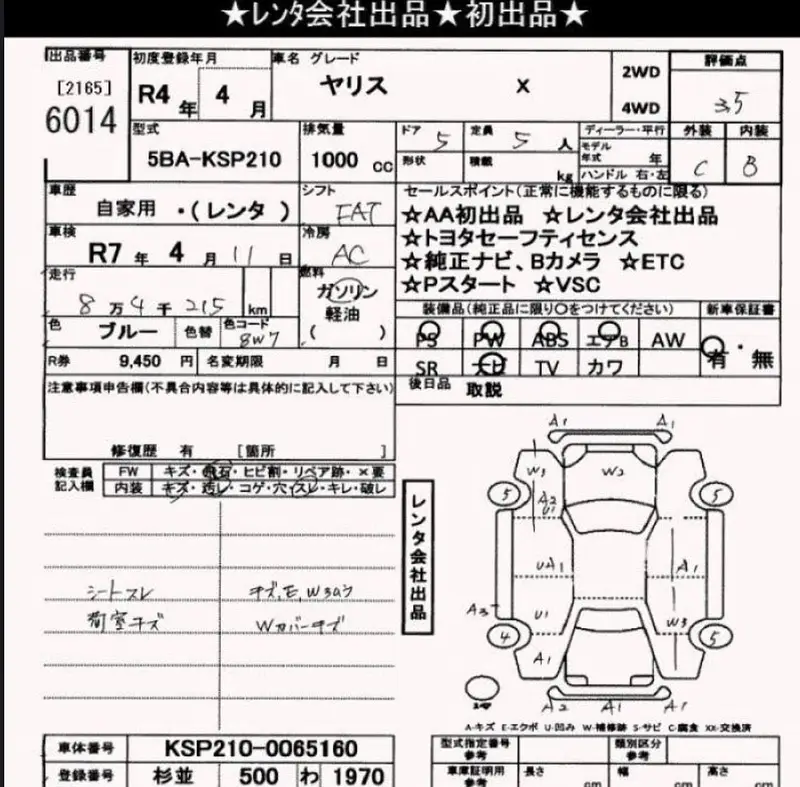 ★レンタ会社出品★初出品★
出品番号 初度登録年月 車名 グレード 評価点
[2165] R4 年 4 月 ヤリス X 2WD 3.5
6014 4WD
型式 排気量 ドア 5 定員 5 人 ディーラー・平行 外装 内装
5BA-KSP210 1000 cc 形状 積載 kg モデル年式 年 C B
ハンドル 右・左
車歴 シフト セールスポイント(正常に機能するものに限る)
自家用 ・(レンタ) FAT ☆AA初出品 ☆レンタ会社出品
車検 冷房 ☆トヨタセーフティセンス
R7 年 4 月 11 日 AC ☆純正ナビ、Bカメラ ☆ETC
走行 燃料 ☆Pスタート ☆VSC
8万4千215 km ガソリン
軽油
( )
装備品(純正品に限り〇をつけてください) 新車保証書
色 ブルー 色替 色コード 8W7 PS PW ABS エアB AW 有・無
R券 9,450 円 名変期限 月 日 SR ナビ TV カワ
注意事項申告欄(不具合内容等は具体的に記入して下さい) 後日品 取説
修復歴 有 [箇所 ]
検査員 FW キズ・飛石・ヒビ割・リペア跡・×要
記入欄 内装 キズ・汚レ・コゲ・穴・スレ・キレ・破レ
レンタ会社出品
シートスレ キズ,E,W3あり
荷室キズ Wカバーキズ
A1 A1
W3 W2
5 5
A2
U1
UA1 A1
A3 U1 W3
4 5
A1
A2 A1 A1
A-キズ E-エクボ U-凹み W-補修跡 S-サビ C-腐食 XX-交換済
車体番号 KSP210-0065160 型式指定番号 参考 類別区分 参考
登録番号 杉並 500 わ 1970 車庫証明用 参考 長さ cm 幅 cm 高さ cm